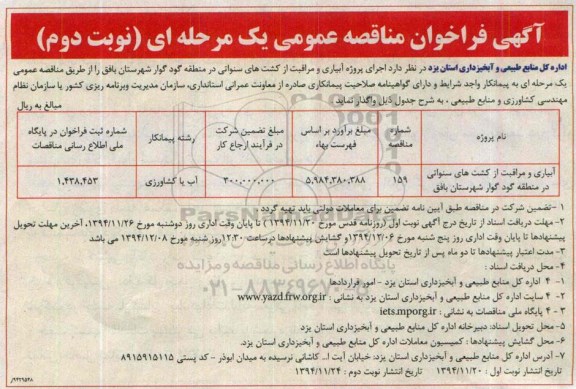 آگهی فراخوان مناقصه عمومی یک مرحله ای (نوبت دوم)
اداره کل منابع طبیعی و آبخیزداری استان یزد در نظر دارد اجرای پروژه آبیاری و مراقبت از کشت های سنواتی در منطقه گود گوار شهرستان بافق را از طریق مناقصه عمومی
یک مرحله ای به پیمانکار واجد شرایط و دارای گواهینامه صلاحیت پیمانکاری صادره از معاونت عمرانی استانداری، سازمان مدیریت وبرنامه ریزی کشور یا سازمان نظام
مهندسی کشاورزی و منابع طبیعی ، به شرح جدول ذیل واگذار نماید
مبالغ به ریال
نام پروژه
شماره مناقصه
مبلغ برآورد بر اساس فهرست بهاء
مبلغ تضمین شرکت در فرآیند ارجاع کار
رشته پیمانکار
شماره ثبت فراخوان در پایگاه ملی اطلاع رسانی مناقصات
آبیاری و مراقبت از کشت های سنواتی در منطقه گود گوار شهرستان بافق
۱۵۹
۵,۹۸۴,۳۸۰,۳۸۸
۳۰۰,۰۰۰,۰۰۰
آب یا کشاورزی
۱,۴۳۸,۴۵۳
۱- تضمین شرکت در مناقصه طبق آیین نامه تضمین برای معاملات دولتی باید تهیه گردد
۲- مهلت دریافت اسناد از تاریخ درج آگهی نوبت اول (روزنامه قدس مورخ ۱۳۹۴/۱۱/۲۰) تا پایان وقت اداری روز دوشنبه مورخ ۱۳۹۴/۱۱/۲۶، آخرین مهلت تحویل
پیشنهادها تا پایان وقت اداری روز پنج شنبه مورخ ۱۳۹۴/۱۲/۰۶و گشایش پیشنهادها درساعت ۱۲:۳۰روز شنبه مورخ ۱۳۹۴/۱۲/۰۸ می باشد
۳- مدت اعتبار پیشنهادها تا دو ماه پس از تاریخ تحویل پیشنهادها است
۴- محل دریافت اسناد :
۱- ۴ اداره کل منابع طبیعی و آبخیزداری استان یزد - امور قراردادها
۲- ۴ سایت اداره کل منابع طبیعی و آبخیزداری استان یزد به نشانی : www.yazd.frw.org.ir
۳- ۴ پایگاه ملی مناقصات به نشانی : iets.mporg.ir
۵- محل تحویل اسناد: دبیرخانه اداره کل منابع طبیعی و آبخیزداری استان یزد
۶- محل گشایش پیشنهادها : کمیسیون معاملات اداره کل منابع طبیعی و آبخیزداری استان یزد.
۷- آدرس اداره کل منابع طبیعی و آبخیزداری استان یزد: خیابان آیت ا... کاشانی نرسیده به میدان ابوذر - کد پستی ۸۹۱۵۹۱۵۱۱۵
تاریخ انتشار نوبت اول : ۱۳۹۴/۱۱/۲۰ تاریخ انتشار نوبت دوم : ۱۳۹۴/۱۱/۲۴
پایگاه اطلاع رسانی مناقصه و مزایده
۰۲۱-۸۸۳۴۹۶۷۰